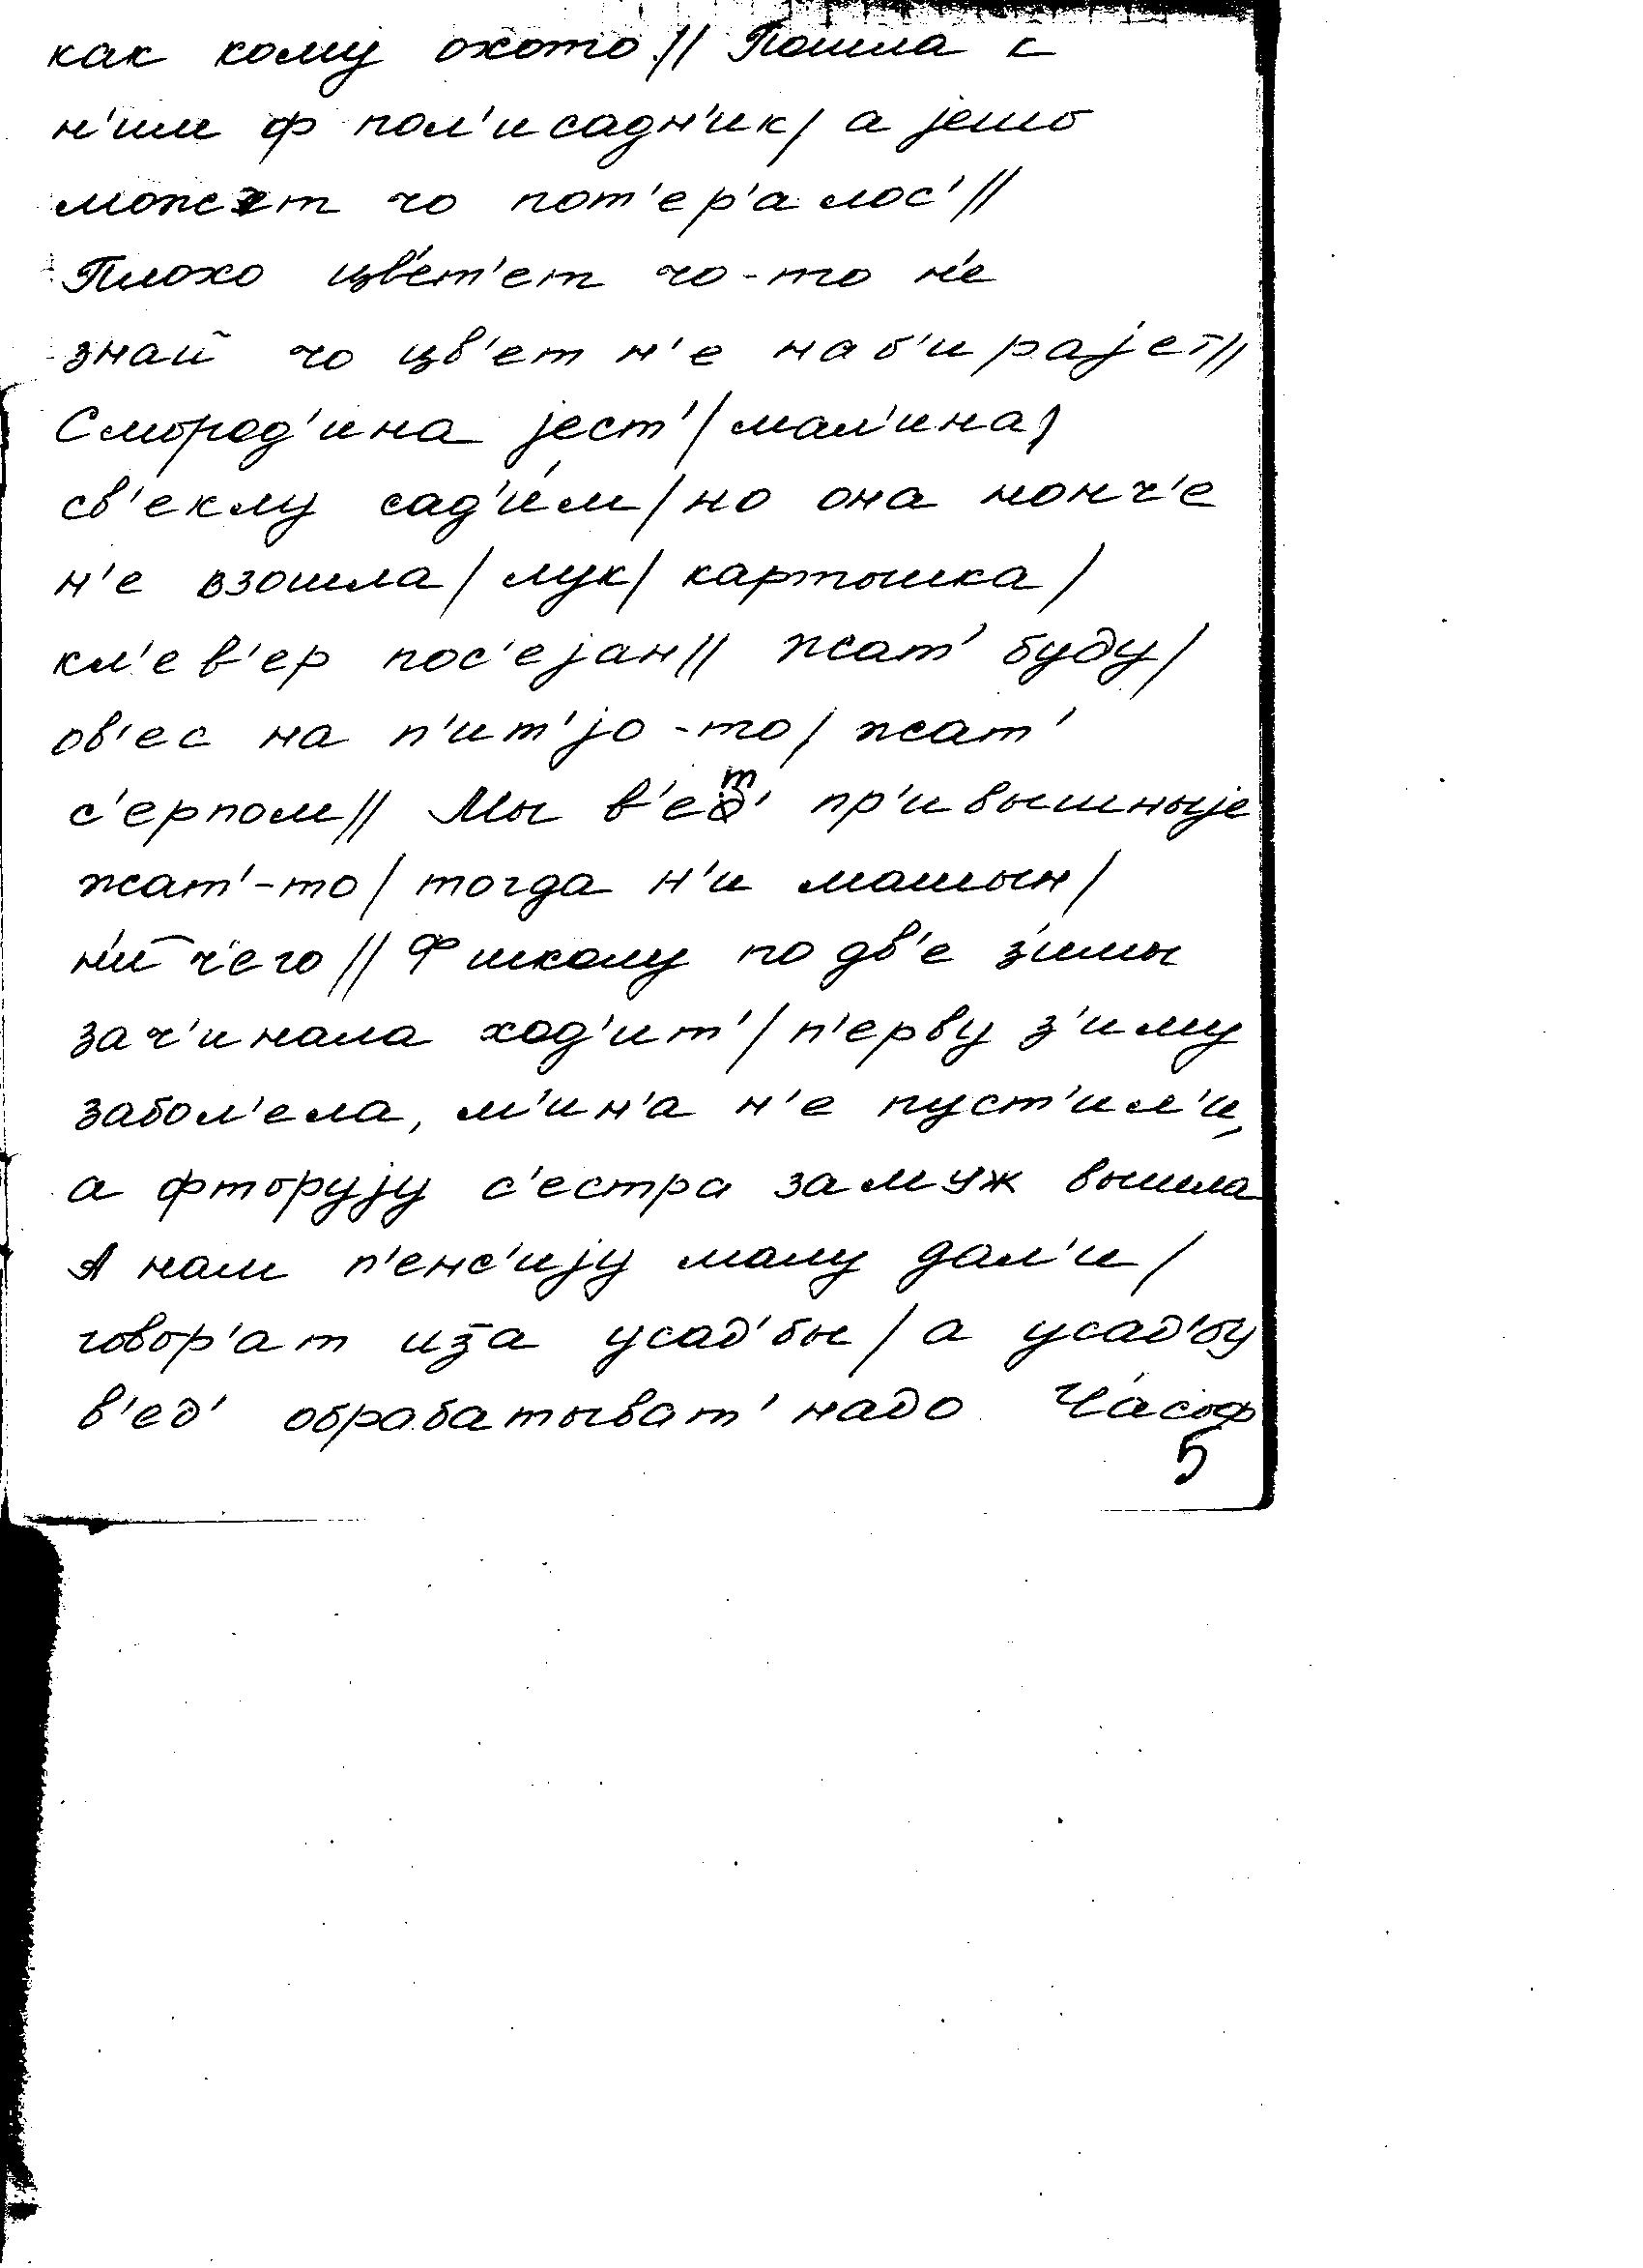 как кому охото // Пошла к
н'им ф пол'исадн'ик / а jешо
может чо пот'ер'алос' //
Плохо цв'ет'ет чо-то н'е
знай чо цв'ет н'е наб'ираjет //
Смород'ина jест' / мал'ина /
св'еклу сад'им / но она нонч'е
н'е взошла / лук / картошка /
кл'ев'ер пос'еjан // жат' буду /
ов'ес на п'ит'jо-то / жат'
с'ерпом // Мы в'ет' пр'ивышныjе
жат'-то / тогда н'и машын /
н'ич'его // Ф школу по дв'е з'имы
зач'инала ход'ит' / п'ерву з'иму
забол'ела, м'ин'а н'е пуст'ил'и,
а фторуjу с'естра замуж вышла
А нам п'енс'иjу малу дал'и /
говор'ат иза усад'бы / а усад'бу
в'ед' обрабатыват' надо Часоф
5